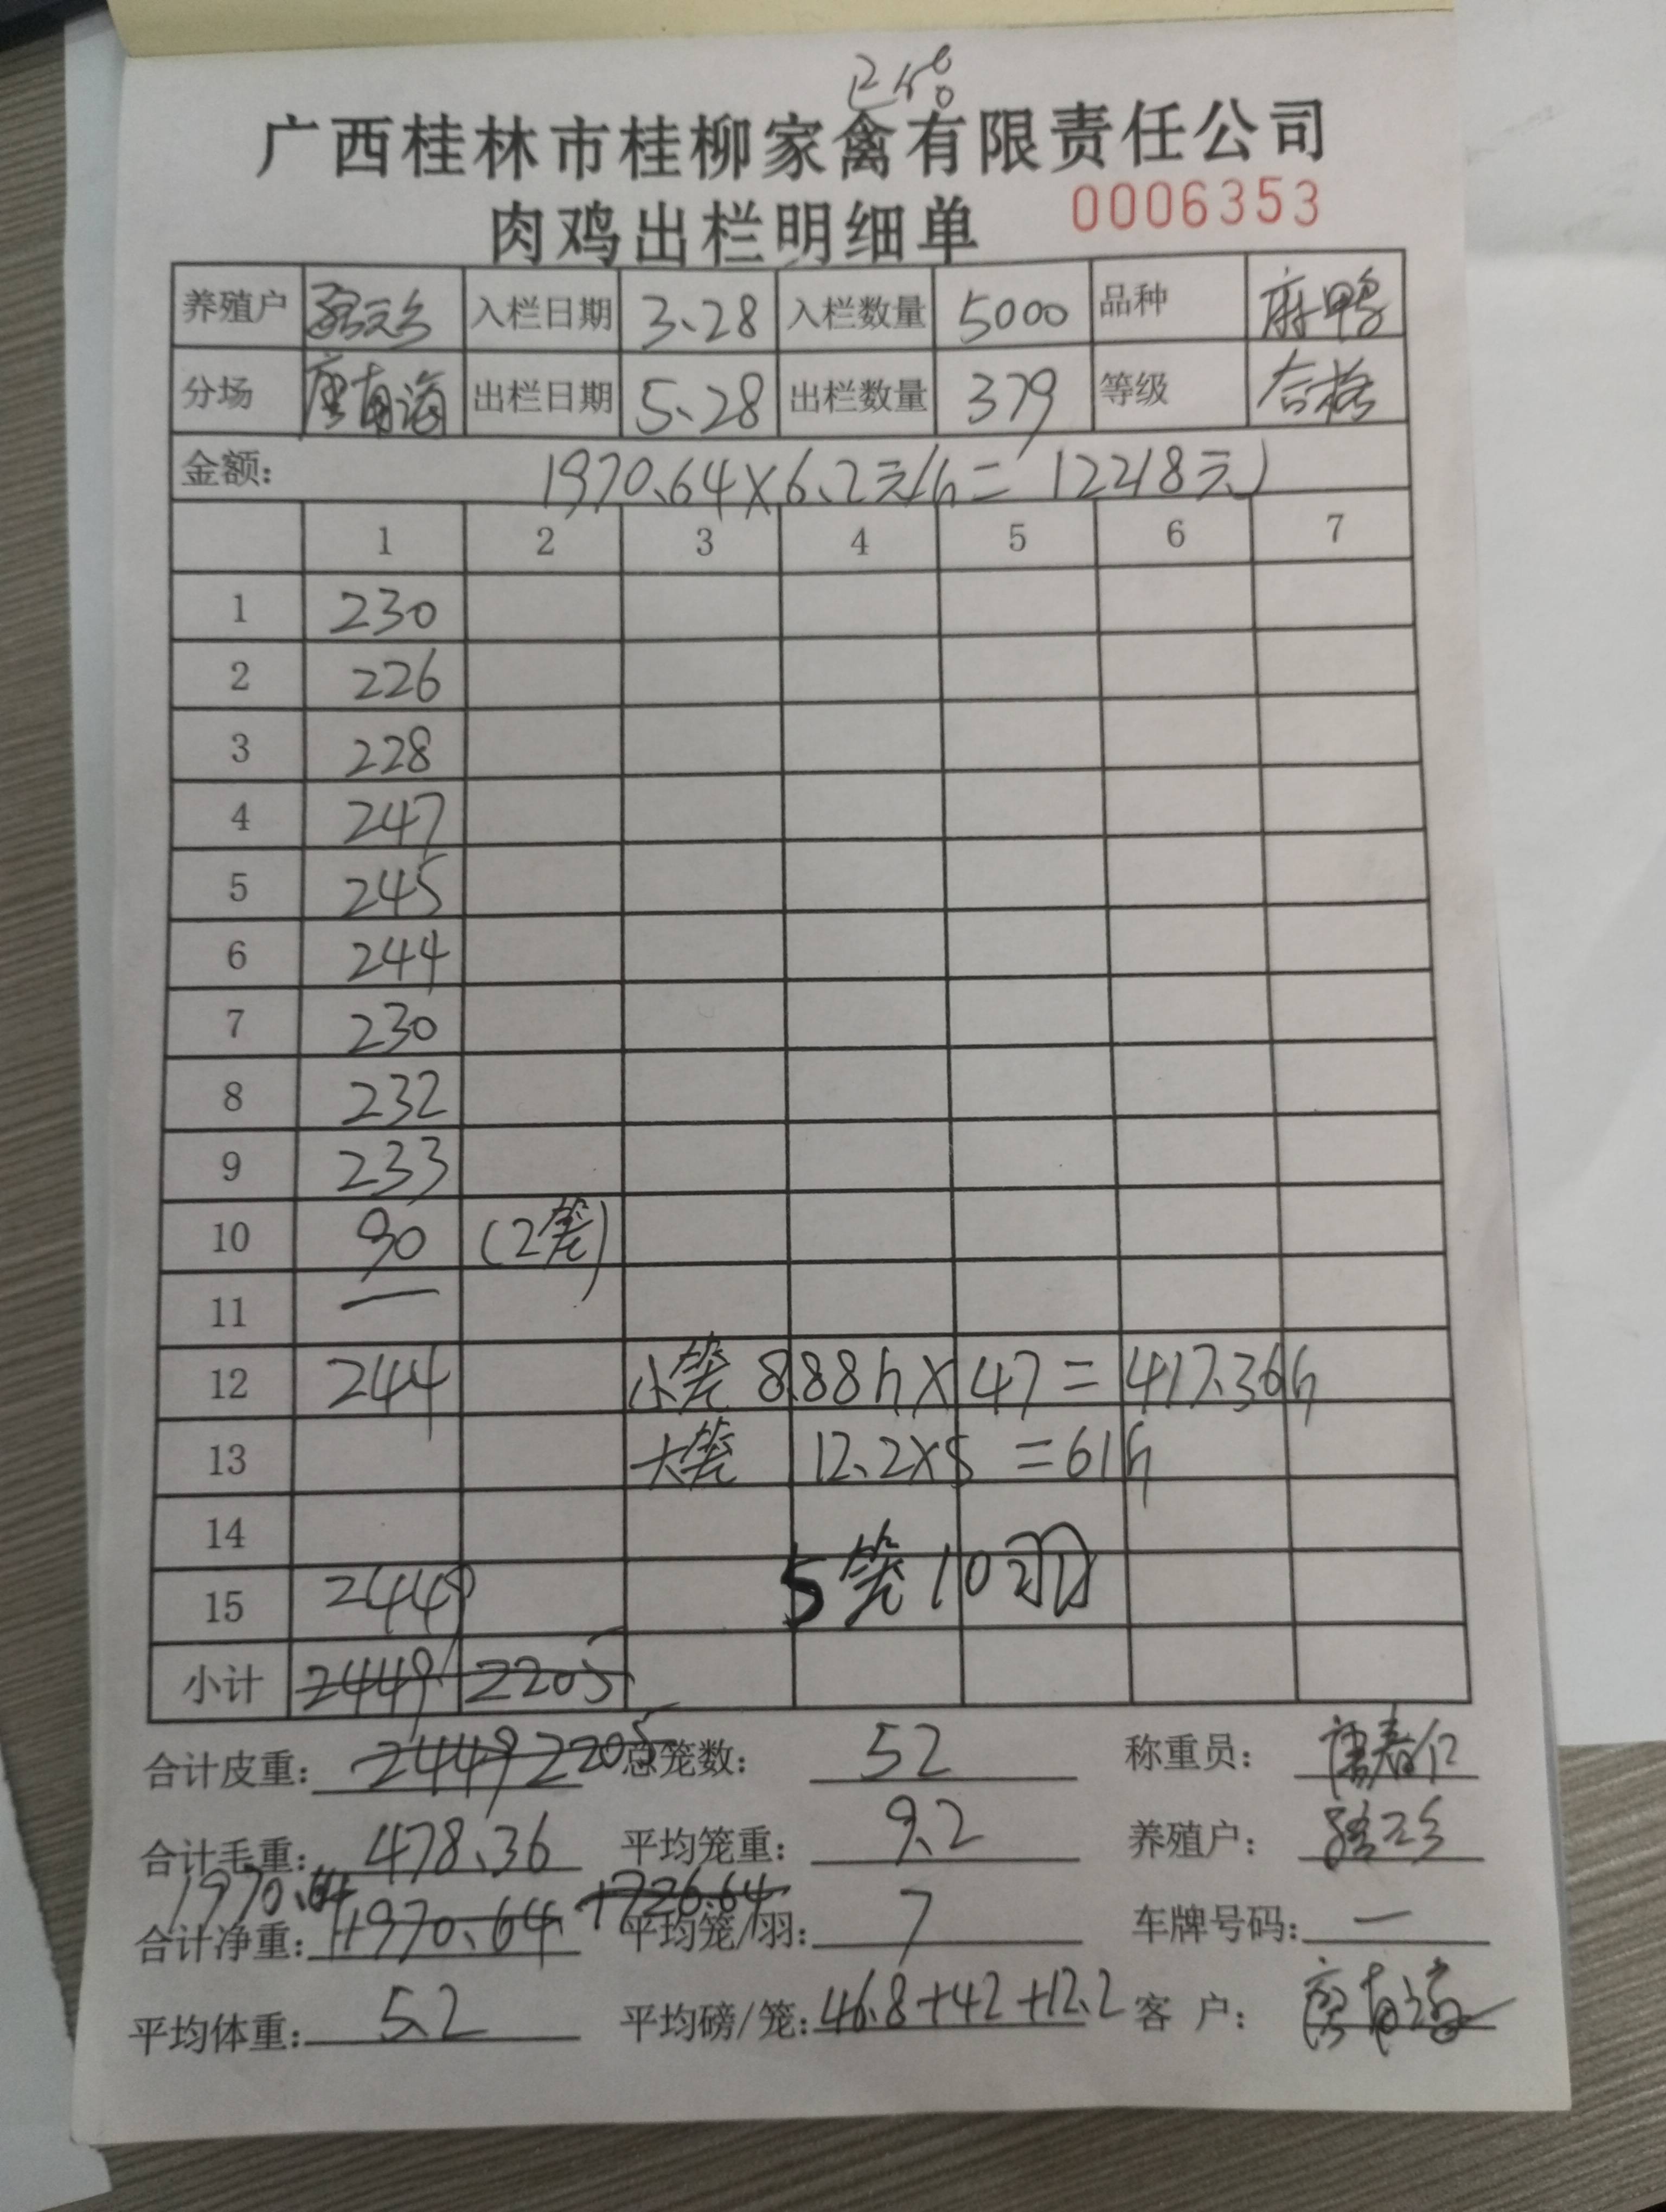 广西桂林市桂柳家禽有限责任公司
肉鸡出栏明细单 0006353
养殖户 入栏日期 3.28 入栏数量 5000 品种 麻鸭
分场 唐有海 出栏日期 5.28 出栏数量 379 等级 合格
金额: 1970.64×6.2元/斤= 12218元
1 2 3 4 5 6 7
1 230
2 226
3 228
4 247
5 245
6 244
7 230
8 232
9 233
10 90 (2笼)
11 —
12 244 小笼 8.88斤×47=417.36斤
13 大笼 12.2×5=61斤
14
5笼10羽
15 2449
小计 2449 2205
合计皮重: 2449 2205 总笼数: 52 称重员: 唐春仁
合计毛重: 478.36 平均笼重: 9.2 养殖户:
1970.64 1726.64
合计净重: 1970.64 平均笼/羽: 7 车牌号码: —
平均体重: 5.2 平均磅/笼: 46.8+42+12.2 客 户: 唐有海